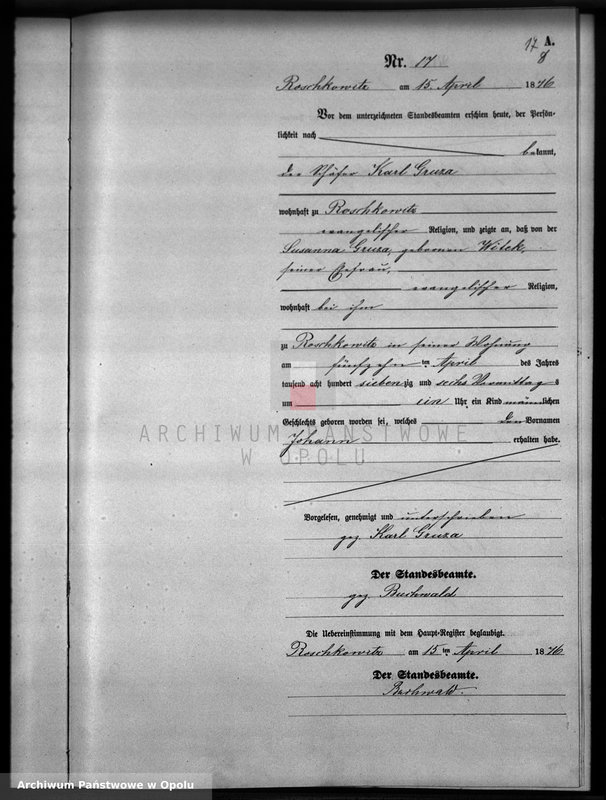 17 A.
8
Nr. 17
Roschkowitz am 15 April 1876
Vor dem unterzeichneten Standesbeamten erschien heute, der Persön-
lichkeit nach
bekannt,
der Schäfer Karl Gruza
wohnhaft zu Roschkowitz
evangelischer Religion, und zeigte an, daß von der
Susanna Gruza, geborenen Witek,
seiner Ehefrau,
evangelischer Religion,
wohnhaft bei ihm
zu Roschkowitz in seiner Wohnung
am fünfzehn ten April des Jahres
tausend acht hundert siebenzig und sechs Vormittags
um ein Uhr ein Kind männlichen
Geschlechts geboren worden sei, welches den Vornamen
Johann erhalten habe.
ARCHIWUM PAŃSTWOWE
W OPOLU
Vorgelesen, genehmigt und unterschrieben
gez. Karl Gruza
Der Standesbeamte.
gez. Buchwald
Die Uebereinstimmung mit dem Haupt-Register beglaubigt.
Roschkowitz am 15 ten April 1876
Der Standesbeamte.
Buchwald.
Archiwum Państwowe w Opolu